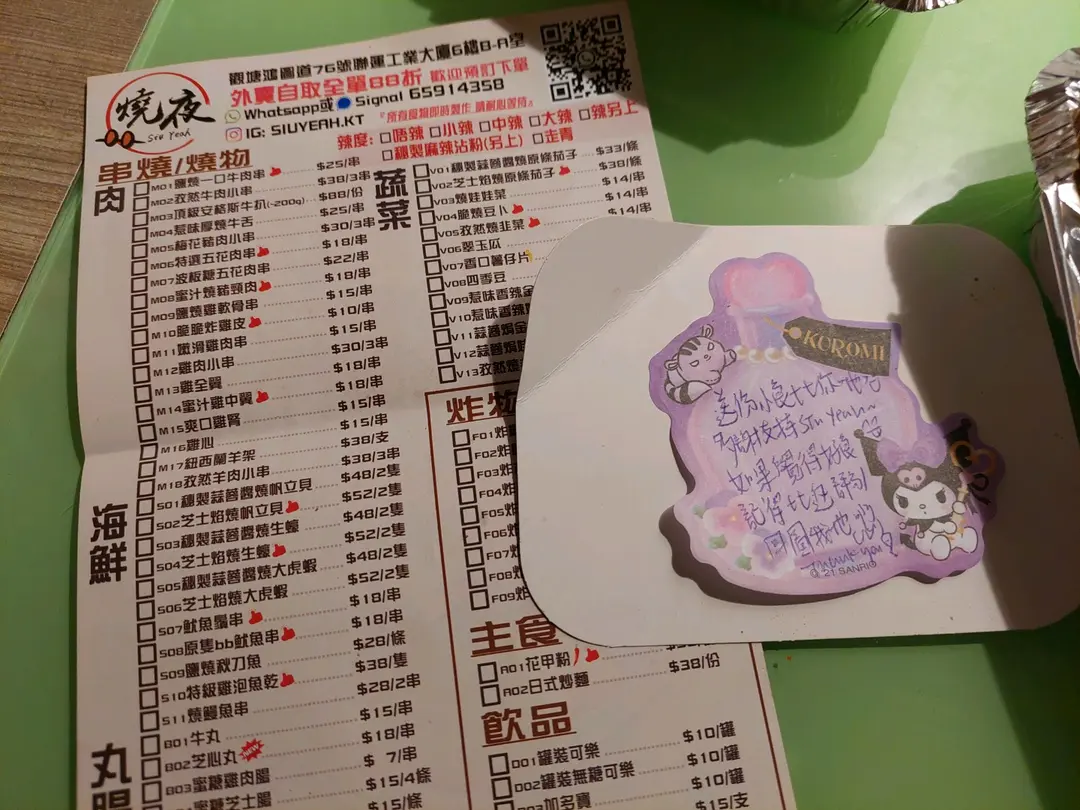 燒夜
Siu Yeah
觀塘鴻圖道76號聯運工業大廈6樓B-A室
外賣自取全單88折 歡迎預訂下單
Whatsapp或Signal 65914358
IG: SIUYEAH.KT
『所有食物即時製作 請耐心等待』
辣度: □唔辣 □小辣 □中辣 □大辣 □辣另上
□穗製麻辣沾粉(另上) □走青
串燒/燒物
肉
M01鹽燒一口牛肉串 $25/串
M02孜然牛肉小串 $38/3串
M03頂級安格斯牛扒(~200g) $88/份
M04惹味厚燒牛舌 $25/串
M05梅花豬肉小串 $30/3串
M06特選五花肉串 $18/串
M07波板糖五花肉串 $22/串
M08蜜汁燒豬頸肉 $18/串
M09鹽燒雞軟骨串 $15/串
M10脆脆炸雞皮 $10/串
M11嫩滑雞肉串 $15/串
M12雞肉小串 $30/3串
M13雞全翼 $18/串
M14蜜汁雞中翼 $18/串
M15爽口雞腎 $15/串
M16雞心 $15/串
M17紐西蘭羊架 $38/支
M18孜然羊肉小串 $38/3串
海鮮
S01穗製蒜蓉醬燒帆立貝 $48/2隻
S02芝士焰燒帆立貝 $52/2隻
S03穗製蒜蓉醬燒生蠔 $48/2隻
S04芝士焰燒生蠔 $52/2隻
S05穗製蒜蓉醬燒大虎蝦 $48/2隻
S06芝士焰燒大虎蝦 $52/2隻
S07魷魚鬚串 $18/串
S08原隻bb魷魚串 $18/串
S09鹽燒秋刀魚 $28/條
S10特級雞泡魚乾 $38/隻
S11燒鰻魚串 $28/2串
丸
B01牛丸 $15/串
B02芝心丸 NEW $18/串
B03蜜糖雞肉腸 $ 7/串
蜜糖芝士腸 $15/4條
$15/條
蔬菜
V01穗製蒜蓉醬燒原條茄子 $33/條
V02芝士焰燒原條茄子 $38/條
V03燒娃娃菜 $14/串
V04脆燒豆卜 $14/串
V05孜然燒韭菜 $14/串
V06翠玉瓜
V07香口薯仔片
V08四季豆
V09惹味香辣金
V10惹味香辣
V11蒜蓉焗金
V12蒜蓉焗
V13孜然燒
炸物
F01炸
F02炸
F03炸
F04
F05炸
F06炸
F07炸
F08炸
F09炸
主食
R01花甲粉
R02日式炒麵 $38/份
飲品
D01罐裝可樂 $10/罐
D02罐裝無糖可樂 $10/罐
D03加多寶 $10/罐
$15/支
KUROMI
送份小食比你地
多謝支持Siu Yeah~
如果覺得好食
記得比返評分
同圖我地
Thank you
© '21 SANRIO